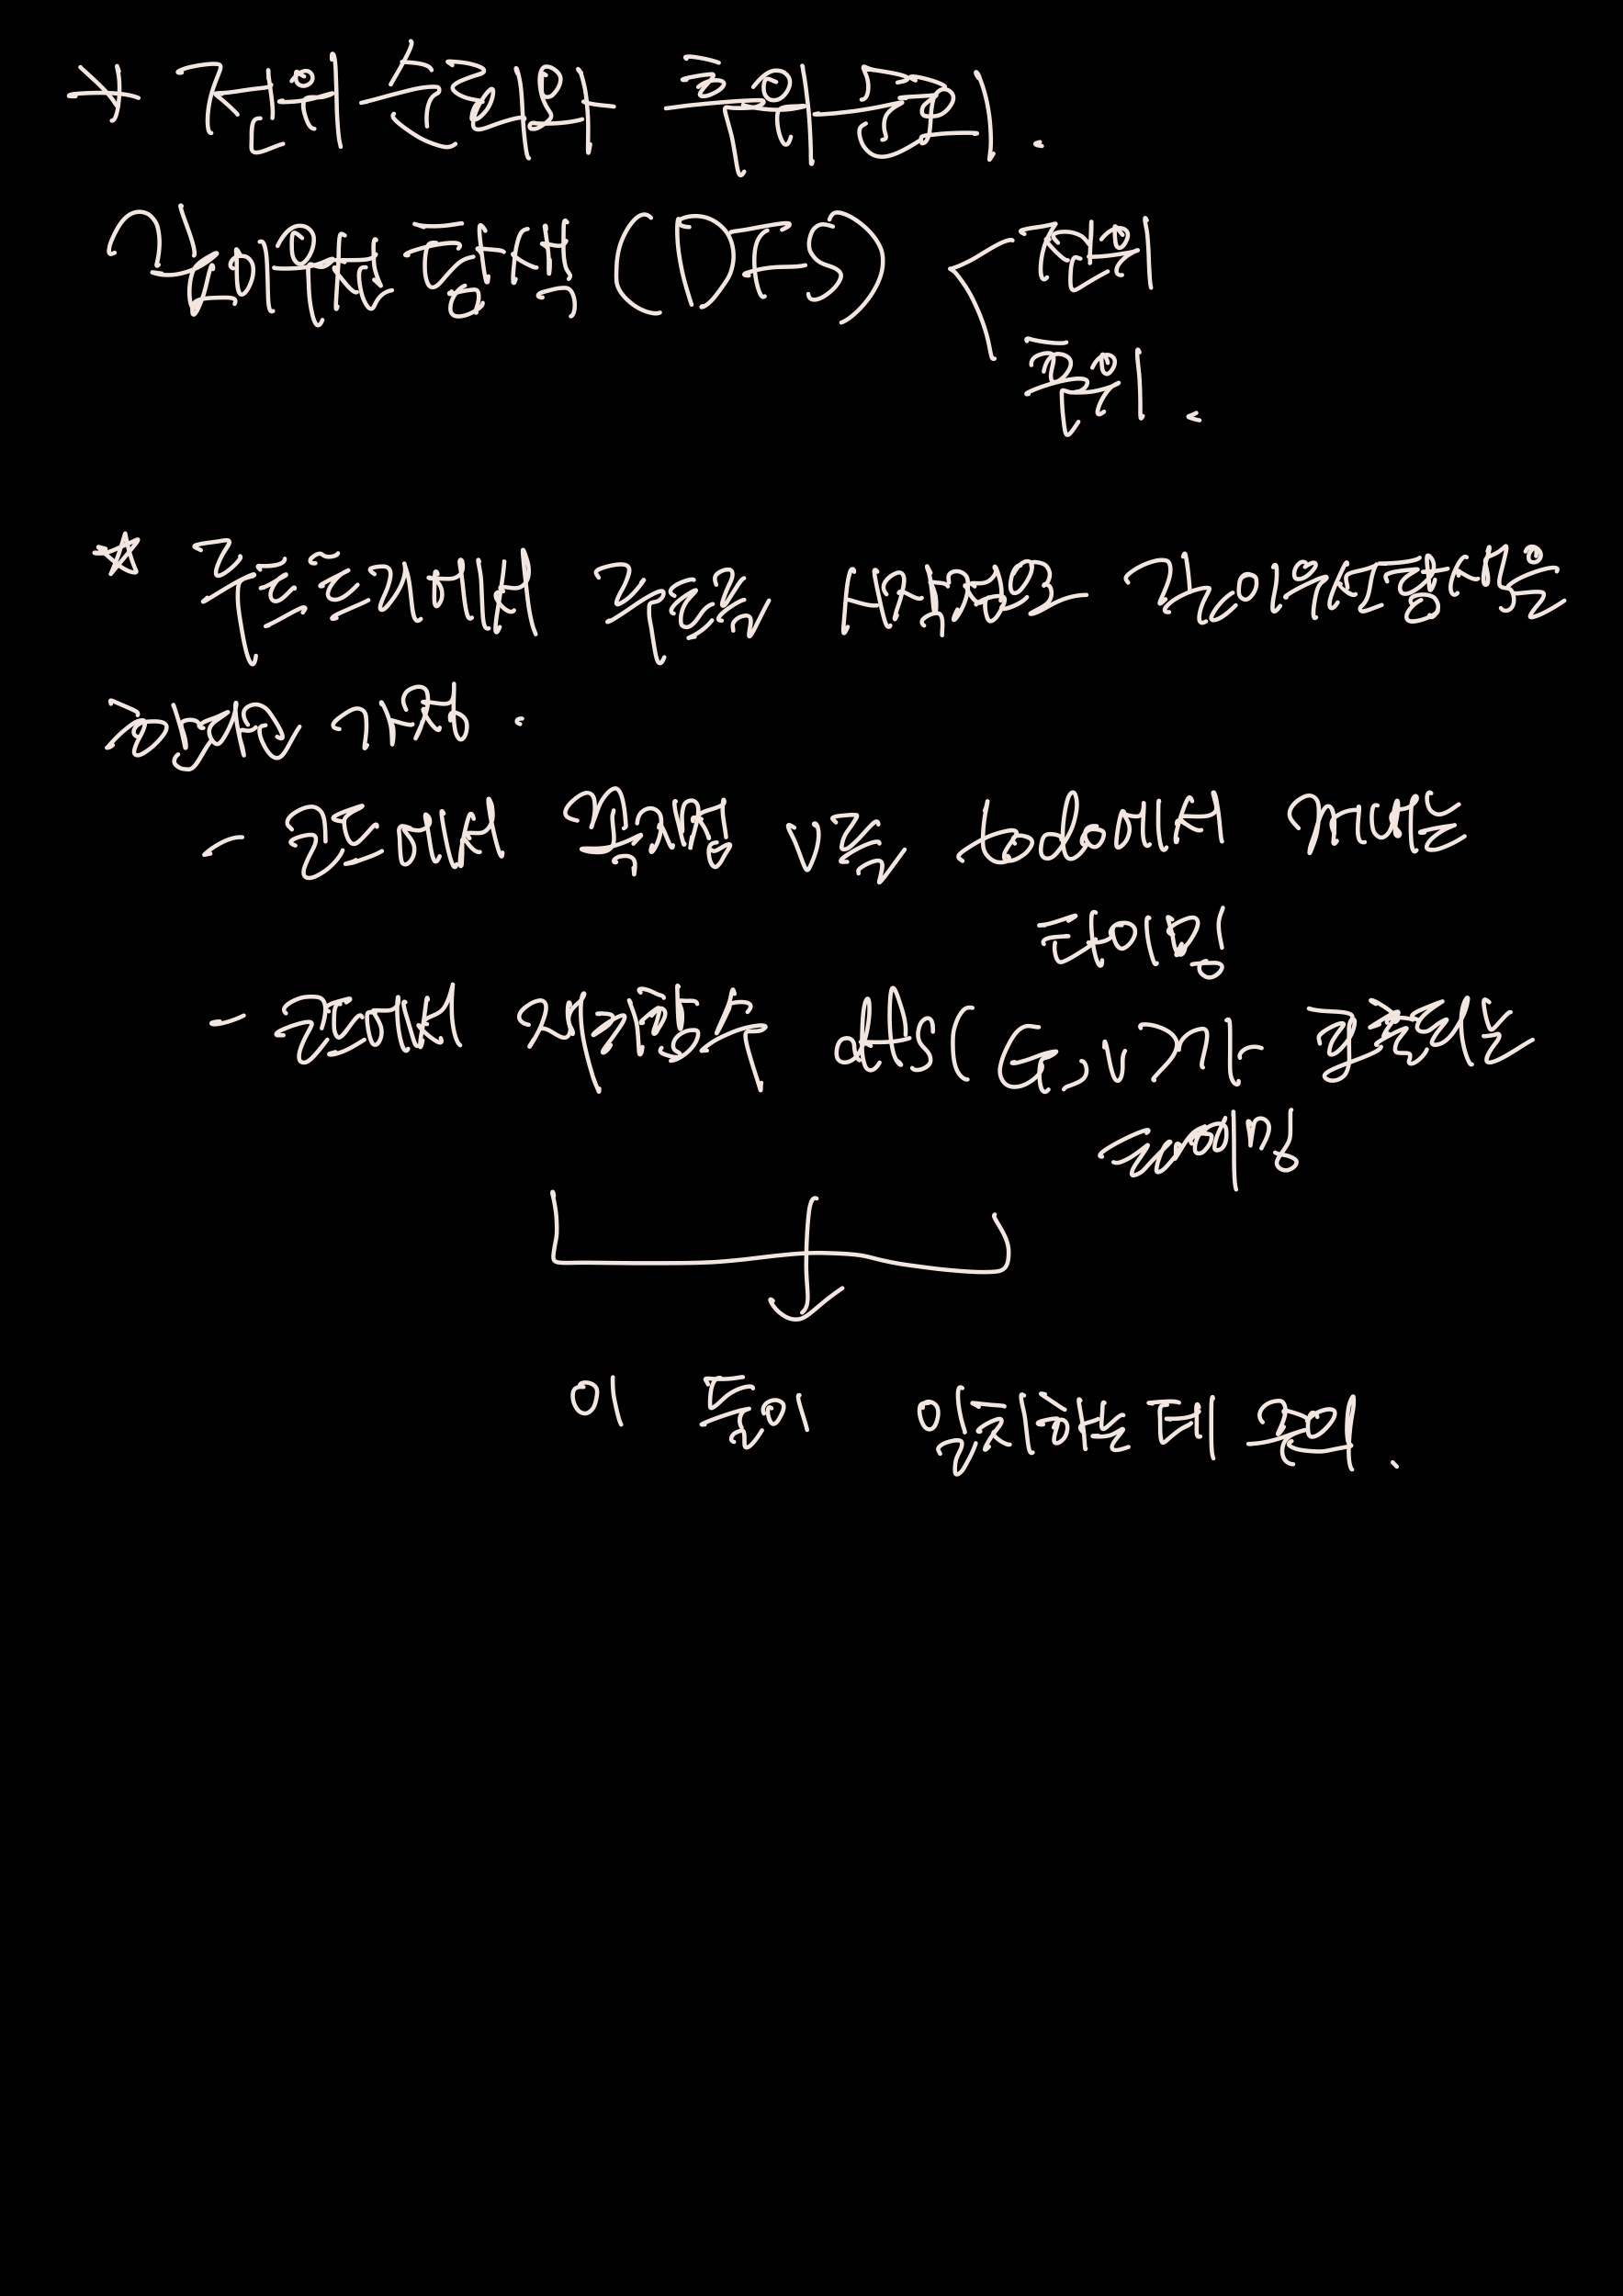 * 전위순회와 후위순회.
깊이우선탐색(DFS) < 전위
후위.
☆ 루트트리에서 루트를 시작점으로 깊이우선탐색을
하는 가정.
- 코드에서 꼭짓점 v를 todo에서 꺼내는
타이밍
- 코드에서 재귀함수 dfs(G,v)가 호출되는
타이밍
이 둘이 일치하는데 주의.